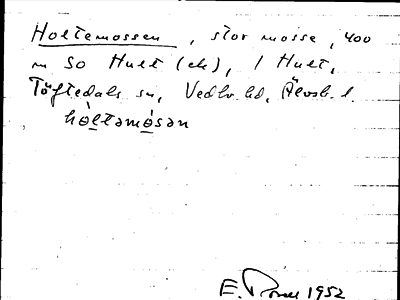 Holtemossen, stor mosse, 400
m SO Hult (ek), / Hult,
Töftedals sn, Vedbo hd, Älvsb. l.
hòltəmósən
E. 1952